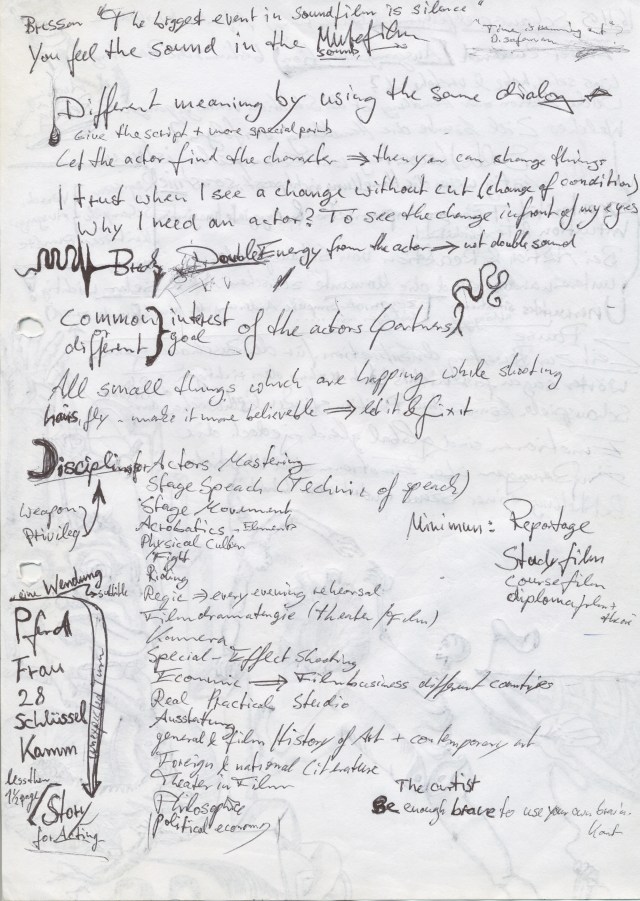 Bresson "The biggest event in soundfilm is silence"
You feel the sound in the Mutefilm
sound
"Time is running out"
Different meaning by using the same dialog
Give the script + more special points
Let the actor find the character ⇒ then you can change things
I trust when I see a change without cut (change of condition)
Why I need an actor? To see the change infront of my eyes
Double Energy from the actor → not double sound
Common or different } interest goal of the actors (partners)
All small things which are happing while shooting
hairs, fly - make it more believable ⇒ let it & fix it
Discipline for Actors Mastering
Stage Speach (Technic of speach)
Weapon
Privileg
Stage Movement
Acrobatics - Elements
Physical Culture
Fight
Riding
Regie → every evening rehearsal
Filmdramaturgie (theater / Film)
Kamera
Special-Effect Shooting
Economic ⇒ Filmbusiness different countries
Real Practical Studio
Ausstattung
general & film History of Art + contemporary art
Foreign & national Literature
Theater in Film
Philosophie
political economy
Minimum: Reportage
Studyfilm
coursefilm
diplomafilm +
eine Wendung
Pferd
Frau
28
Schlüssel
Kamm
unexpected turn
less then
1 1/2 page
Story
for Acting
The artist
Be enough brave to use your own brain.
Kant